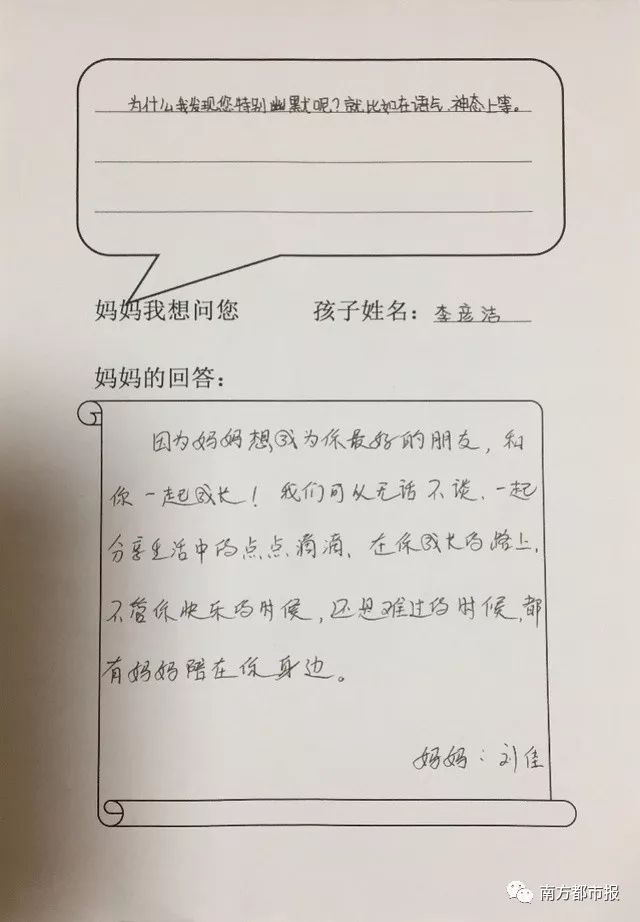 为什么我发现您特别幽默呢？就比如在语气、神态上等。
妈妈我想问您 孩子姓名：李彦洁
妈妈的回答：
因为妈妈想成为你最好的朋友，和
你一起成长！我们可以无话不谈、一起
分享生活中的点点滴滴、在你成长的路上，
不管你快乐的时候，还是难过的时候，都
有妈妈陪在你身边。
妈妈：刘佳
南方都市报